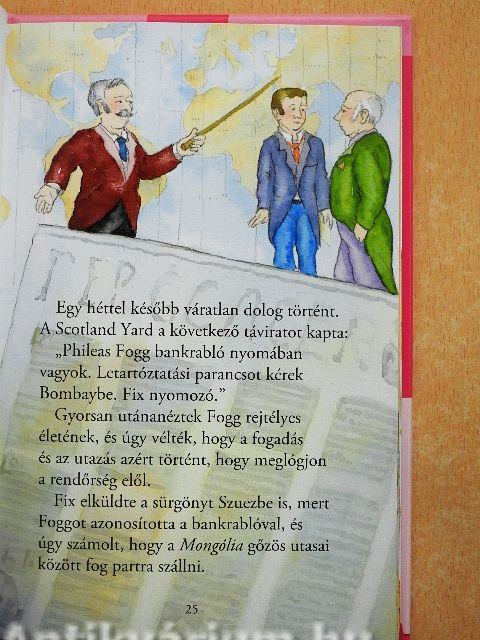 Egy héttel később váratlan dolog történt.
A Scotland Yard a következő táviratot kapta:
„Phileas Fogg bankrabló nyomában
vagyok. Letartóztatási parancsot kérek
Bombaybe. Fix nyomozó.”
Gyorsan utánanéztek Fogg rejtélyes
életének, és úgy vélték, hogy a fogadás
és az utazás azért történt, hogy meglógjon
a rendőrség elől.
Fix elküldte a sürgönyt Szuezbe is, mert
Foggot azonosította a bankrablóval, és
úgy számolt, hogy a Mongólia gőzös utasai
között fog partra szállni.
25
Antikvárium.hu